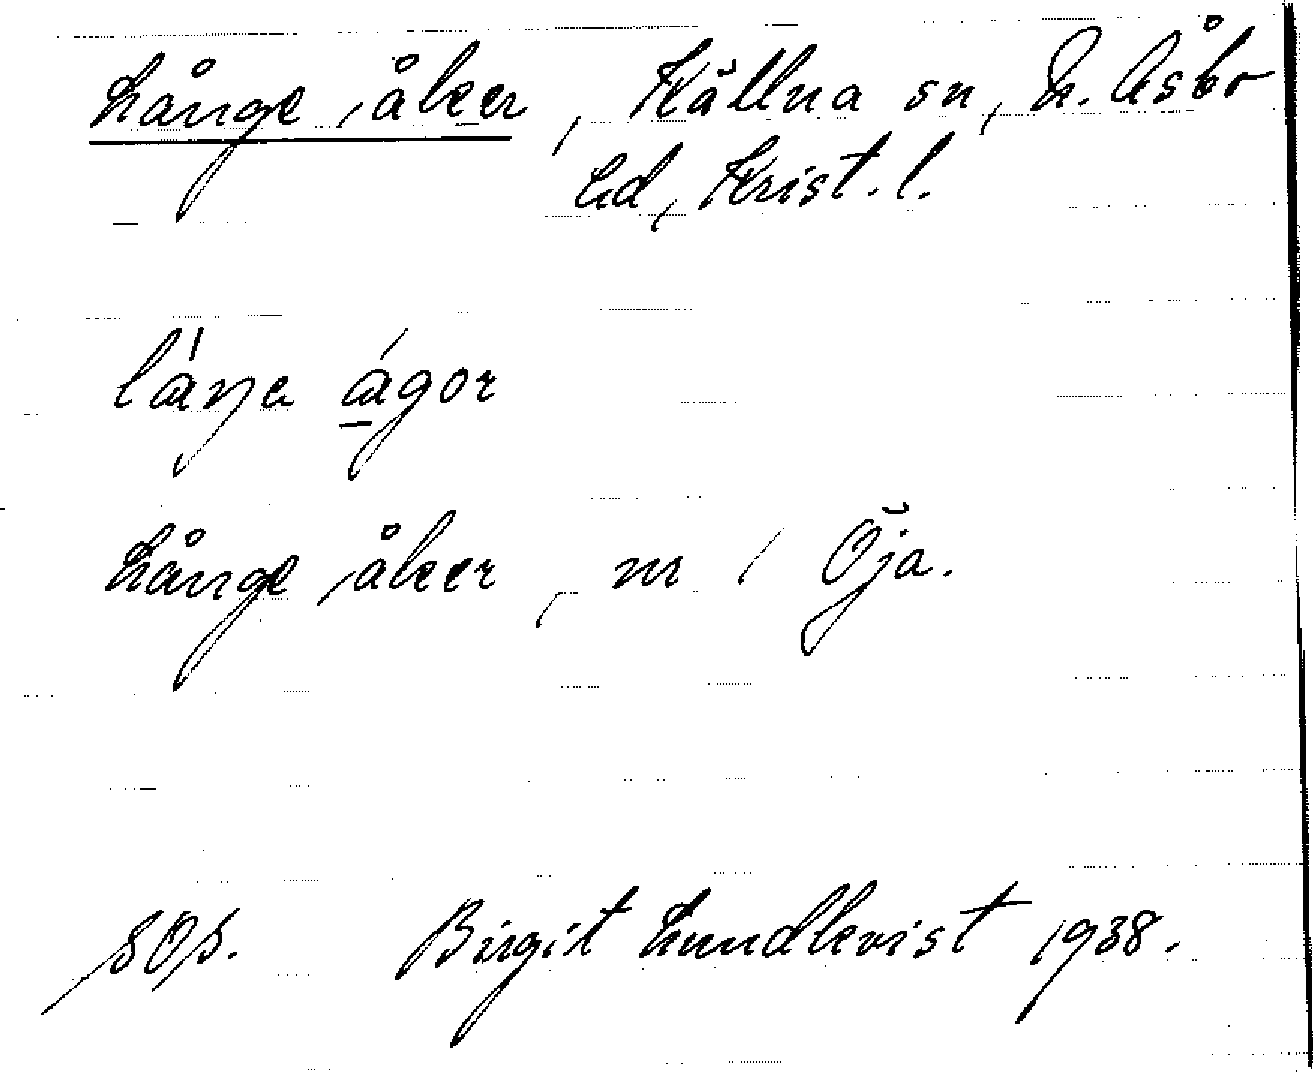 Långe åker, Källna sn, N. Åsbo
hd, Krist. l.
låŋa ágor
Långe åker, nr 1 Öja.
Birgit Lundkvist 1938.